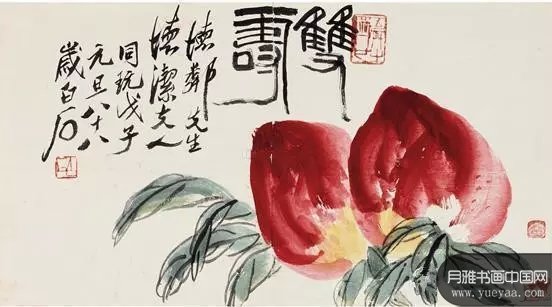 雙壽
德鄰先生
德潔夫人
同玩戊子
元旦八十八
歲白石
月雅书画中国网
www.yueyaa.com